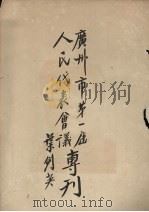 廣州市第一届
人民代表會議
專刊
葉剑英